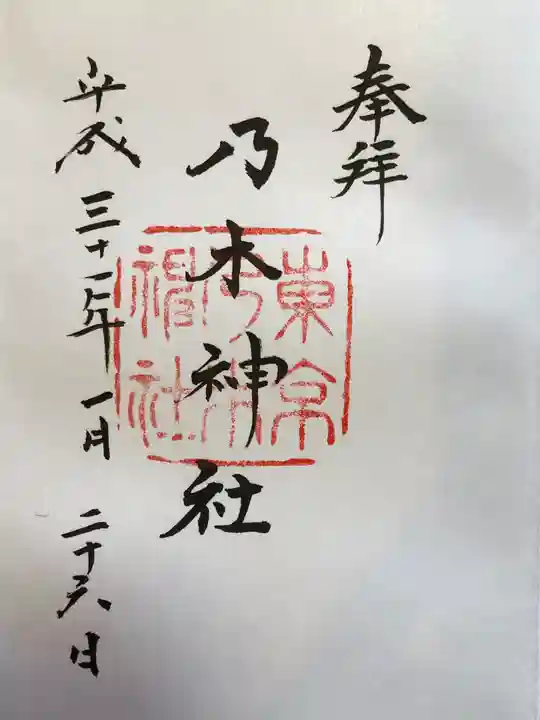 奉拝
乃木神社
東京
乃木
神社
平成三十一年一月二十六日